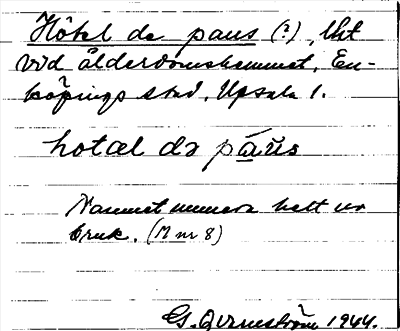 Hôtel de paus (?), lht
vid ålderdomshemmet, En-
köpings stad, Upsala l.
hotæl də pāŭs
Namnet numera helt ur
bruk. (M nr 8)
G. Qvrnström 1944.